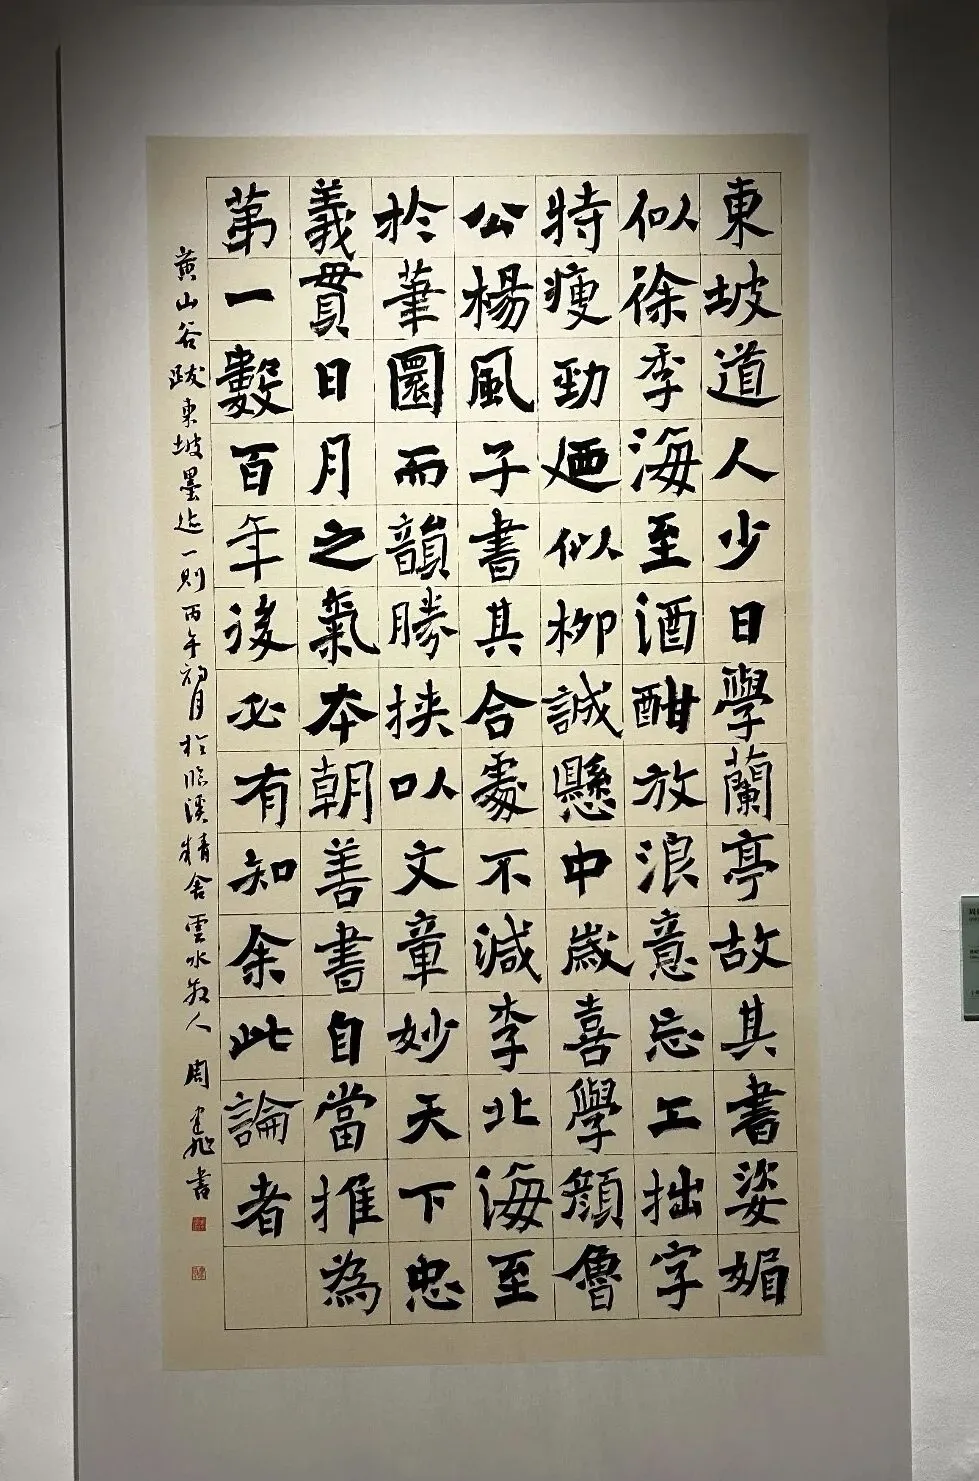 東坡道人少日學蘭亭故其書姿媚
似徐季海至酒酣放浪意忘工拙字
特瘦勁廼似柳誠懸中歲喜學顏魯
公楊風子書其合處不減李北海至
於筆圜而韻勝挾以文章妙天下忠
義貫日月之氣本朝善書自當推為
第一數百年後必有知余此論者
黃山谷跋東坡墨迹一則丙午初月於臨溪精舍雲水散人周書